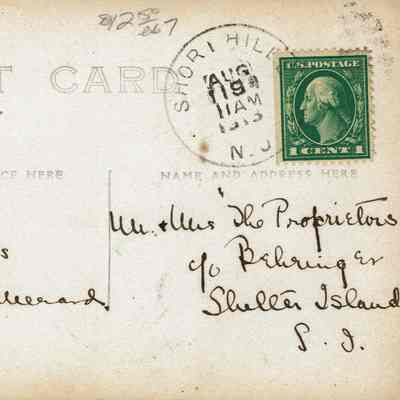 $12.50
SHORT HILLS
T CARD
AUG
19
11 AM
1913
N. J
U.S. POSTAGE
1 CENT 1
CE HERE
NAME AND ADDRESS HERE
Mr. & Mrs "The Proprietors
c/o Behringer
Shelter Island
L. I.